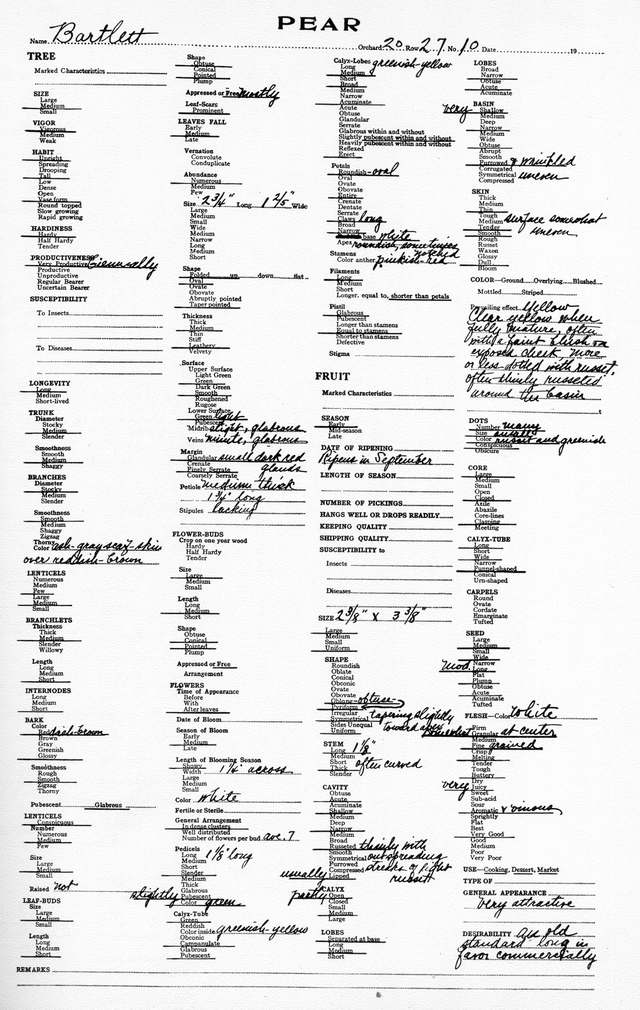 PEAR
Name Bartlett Orchard 20 Row 27 No. 10 Date 19
TREE
Marked Characteristics
SIZE
Large
Medium
Small
VIGOR
Vigorous
Medium
Weak
HABIT
Upright
Spreading
Drooping
Tall
Low
Dense
Open
Vase form
Round topped
Slow growing
Rapid growing
HARDINESS
Hardy
Half Hardy
Tender
PRODUCTIVENESS
Very Productive biennually
Productive
Unproductive
Regular Bearer
Uncertain Bearer
SUSCEPTIBILITY
To Insects
To Diseases
LONGEVITY
Long
Medium
Short-lived
TRUNK
Diameter
Stocky
Medium
Slender
Smoothness
Smooth
Medium
Shaggy
BRANCHES
Diameter
Stocky
Medium
Slender
Smoothness
Smooth
Medium
Shaggy
Zigzag
Thorny
Color ash-gray scarf-skin
over reddish-brown
LENTICELS
Numerous
Medium
Few
Large
Medium
Small
BRANCHLETS
Thickness
Thick
Medium
Slender
Willowy
Length
Long
Medium
Short
INTERNODES
Long
Medium
Short
BARK
Color
Reddish-brown
Brown
Gray
Greenish
Glossy
Smoothness
Rough
Smooth
Zigzag
Thorny
Pubescent Glabrous
LENTICELS
Conspicuous
Number
Numerous
Medium
Few
Size
Large
Medium
Small
Raised not
LEAF-BUDS
Size
Large
Medium
Small
Length
Long
Medium
Short
Shape
Obtuse
Conical
Pointed
Plump
Appressed or Free mostly
Leaf-Scars
Prominent
LEAVES FALL
Early
Medium
Late
Vernation
Convolute
Conduplicate
Abundance
Numerous
Medium
Few
Size 2 3/4" Long 1 2/5" Wide
Large
Medium
Small
Wide
Medium
Narrow
Long
Medium
Short
Shape
Folded up down flat
Oval
Ovate
Obovate
Abruptly pointed
Taper pointed
Thickness
Thick
Medium
Thin
Stiff
Leathery
Velvety
Surface
Upper Surface
Light Green
Green
Dark Green
Smooth
Roughened
Rugose
Lower Surface
Green light
Pubescent
Midrib slight, glabrous
Veins minute, glabrous
Margin
Glandular small dark red
Crenate glands
Finely Serrate
Coarsely Serrate
Petiole medium thick
1 3/4" long
Stipules lacking
FLOWER-BUDS
Crop on one year wood
Hardy
Half Hardy
Tender
Size
Large
Medium
Small
Length
Long
Medium
Short
Shape
Obtuse
Conical
Pointed
Plump
Appressed or Free
Arrangement
FLOWERS
Time of Appearance
Before
With
After leaves
Date of Bloom
Season of Bloom
Early
Medium
Late
Length of Blooming Season
Showy
Width 1 1/4" across
Large
Medium
Small
Color White
Fertile or Sterile
General Arrangement
In dense clusters
Well distributed
Number of flowers per bud ave. 7
Pedicels 1 1/8" long
Long
Medium
Short
Slender
Medium
Thick
Glabrous
slightly Pubescent
Color green
Calyx-Tube
Green
Reddish
Color inside greenish-yellow
Obconic
Campanulate
Glabrous
Pubescent
REMARKS
Calyx-Lobes greenish-yellow
Long
Medium
Short
Broad
Medium
Narrow
Acuminate
Acute
Obtuse
Glandular
Serrate
Glabrous within and without
Slightly pubescent within and without
Heavily pubescent within and without
Reflexed
Erect
Petals
Roundish-oval
Oval
Ovate
Obovate
Entire
Crenate
Dentate
Serrate
Claws long
Broad
Narrow
base white
Apex roundish, sometimes
notched
Stamens
Color anther pinkish-red
Filaments
Long
Medium
Short
Longer, equal to, shorter than petals
Pistil
Glabrous
Pubescent
Longer than stamens
Equal to stamens
Shorter than stamens
Defective
Stigma
FRUIT
Marked Characteristics
SEASON
Early
Mid-season
Late
DATE OF RIPENING
Ripens in September
LENGTH OF SEASON
NUMBER OF PICKINGS
HANGS WELL OR DROPS READILY
KEEPING QUALITY
SHIPPING QUALITY
SUSCEPTIBILITY to
Insects
Diseases
SIZE 2 3/8" x 3 3/8"
Large
Medium
Small
Uniform
SHAPE
Roundish
Oblate
Conical
Obconic
Ovate
Obovate
Oblong-obtuse-
Pyriform
Irregular tapering slightly
Symmetrical toward apex
Sides Unequal
Uniform
STEM
Long 1 1/8"
Medium
Short
Thick often curved
Slender
CAVITY
Obtuse
Acute
Acuminate
Shallow
Medium
Deep
Narrow
Medium
Broad
Russeted thinly with
Smooth
Symmetrical outspreading
Furrowed
Compressed streaks of light
usually Lipped russet
partly CALYX
Open
Closed
Small
Medium
Large
LOBES
Separated at base
Long
Medium
Short
LOBES
Broad
Narrow
Obtuse
Acute
Acuminate
BASIN
very Shallow
Medium
Deep
Narrow
Medium
Wide
Obtuse
Abrupt
Smooth
Furrowed & wrinkled
Corrugated
Symmetrical uneven
Compressed
SKIN
Thick
Medium
Thin
Tough
Medium surface somewhat
Tender uneven
Smooth
Rough
Russet
Waxen
Glossy
Dull
Bloom
COLOR—Ground Overlying Blushed
Mottled Striped
Prevailing effect Yellow
Clear yellow when
fully mature, often
with a faint blush on
exposed cheek, more
or less dotted with russet,
often thinly russeted
around the basin
DOTS
Number many
Size small
Color russet and greenish
Conspicuous
Obscure
CORE
Large
Medium
Small
Open
Closed
Axile
Abaxile
Core-lines
Clasping
Meeting
CALYX-TUBE
Long
Short
Wide
Narrow
Funnel-shaped
Conical
Urn-shaped
CARPELS
Round
Ovate
Cordate
Emarginate
Tufted
SEED
Large
Medium
Small
Wide
mod. Narrow
Long
Flat
Plump
Obtuse
Acute
Acuminate
Tufted
FLESH—Color White
Firm
somewhat Granular at center
Medium
Fine grained
Crisp
Melting
Tender
Tough
Buttery
Dry
very Juicy
Sweet
Sub-acid
Sour
Aromatic & vinous
Sprightly
Flat
Best
Very Good
Good
Medium
Poor
Very Poor
USE—Cooking, Dessert, Market
TYPE OF
GENERAL APPEARANCE
Very attractive
DESIRABILITY An old
standard long in
favor commercially